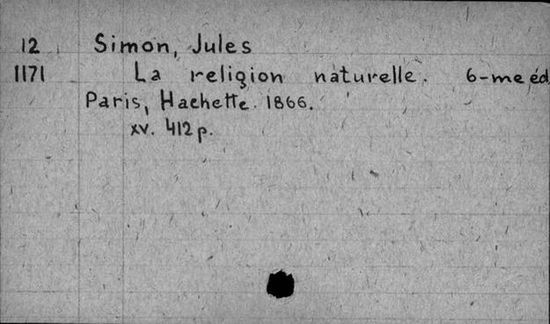 12 Simon, Jules
1171 La religion naturelle. 6-me éd
Paris, Hachette. 1866.
xv. 412 p.